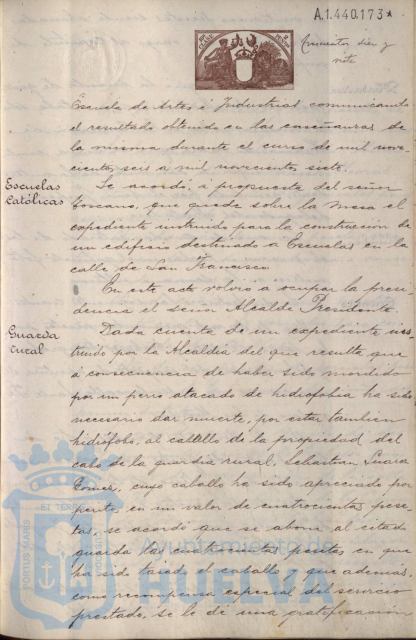 A.1.440.173*
Escuela de Artes é Industrias, comunicando
el resultado obtenido en las enseñanzas de
la misma durante el curso de mil nove-
cientos seis á mil novecientos siete.
Escuelas
Católicas
Se acordó, á propuesta del señor
Toscano, que quede sobre la mesa el
expediente instruido para la construcción de
un edificio destinado á Escuelas en la
calle de San Francisco.
En este acto volvió a ocupar la presi-
dencia el señor Alcalde Presidente.
Guarda
rural
Dada cuenta de un expediente ins-
truido por la Alcaldía del que resulta que
á consecuencia de haber sido mordido
por un perro atacado de hidrofobia ha sido
necesario dar muerte, por estar tambien
hidrófobo, al caballo de la propiedad del
cabo de la guardia rural, Sebastian
Gomez, cuyo caballo ha sido apreciado por
perito, en un valor de cuatrocientas pese-
tas, se acordó que se abone al citado
guarda las cuatrocientas pesetas en que
ha sido tasado el caballo y que además,
como recompensa especial del servicio
prestado, se le dé una gratificación
PORTUS MARIS
Ayuntamiento de
HUELVA